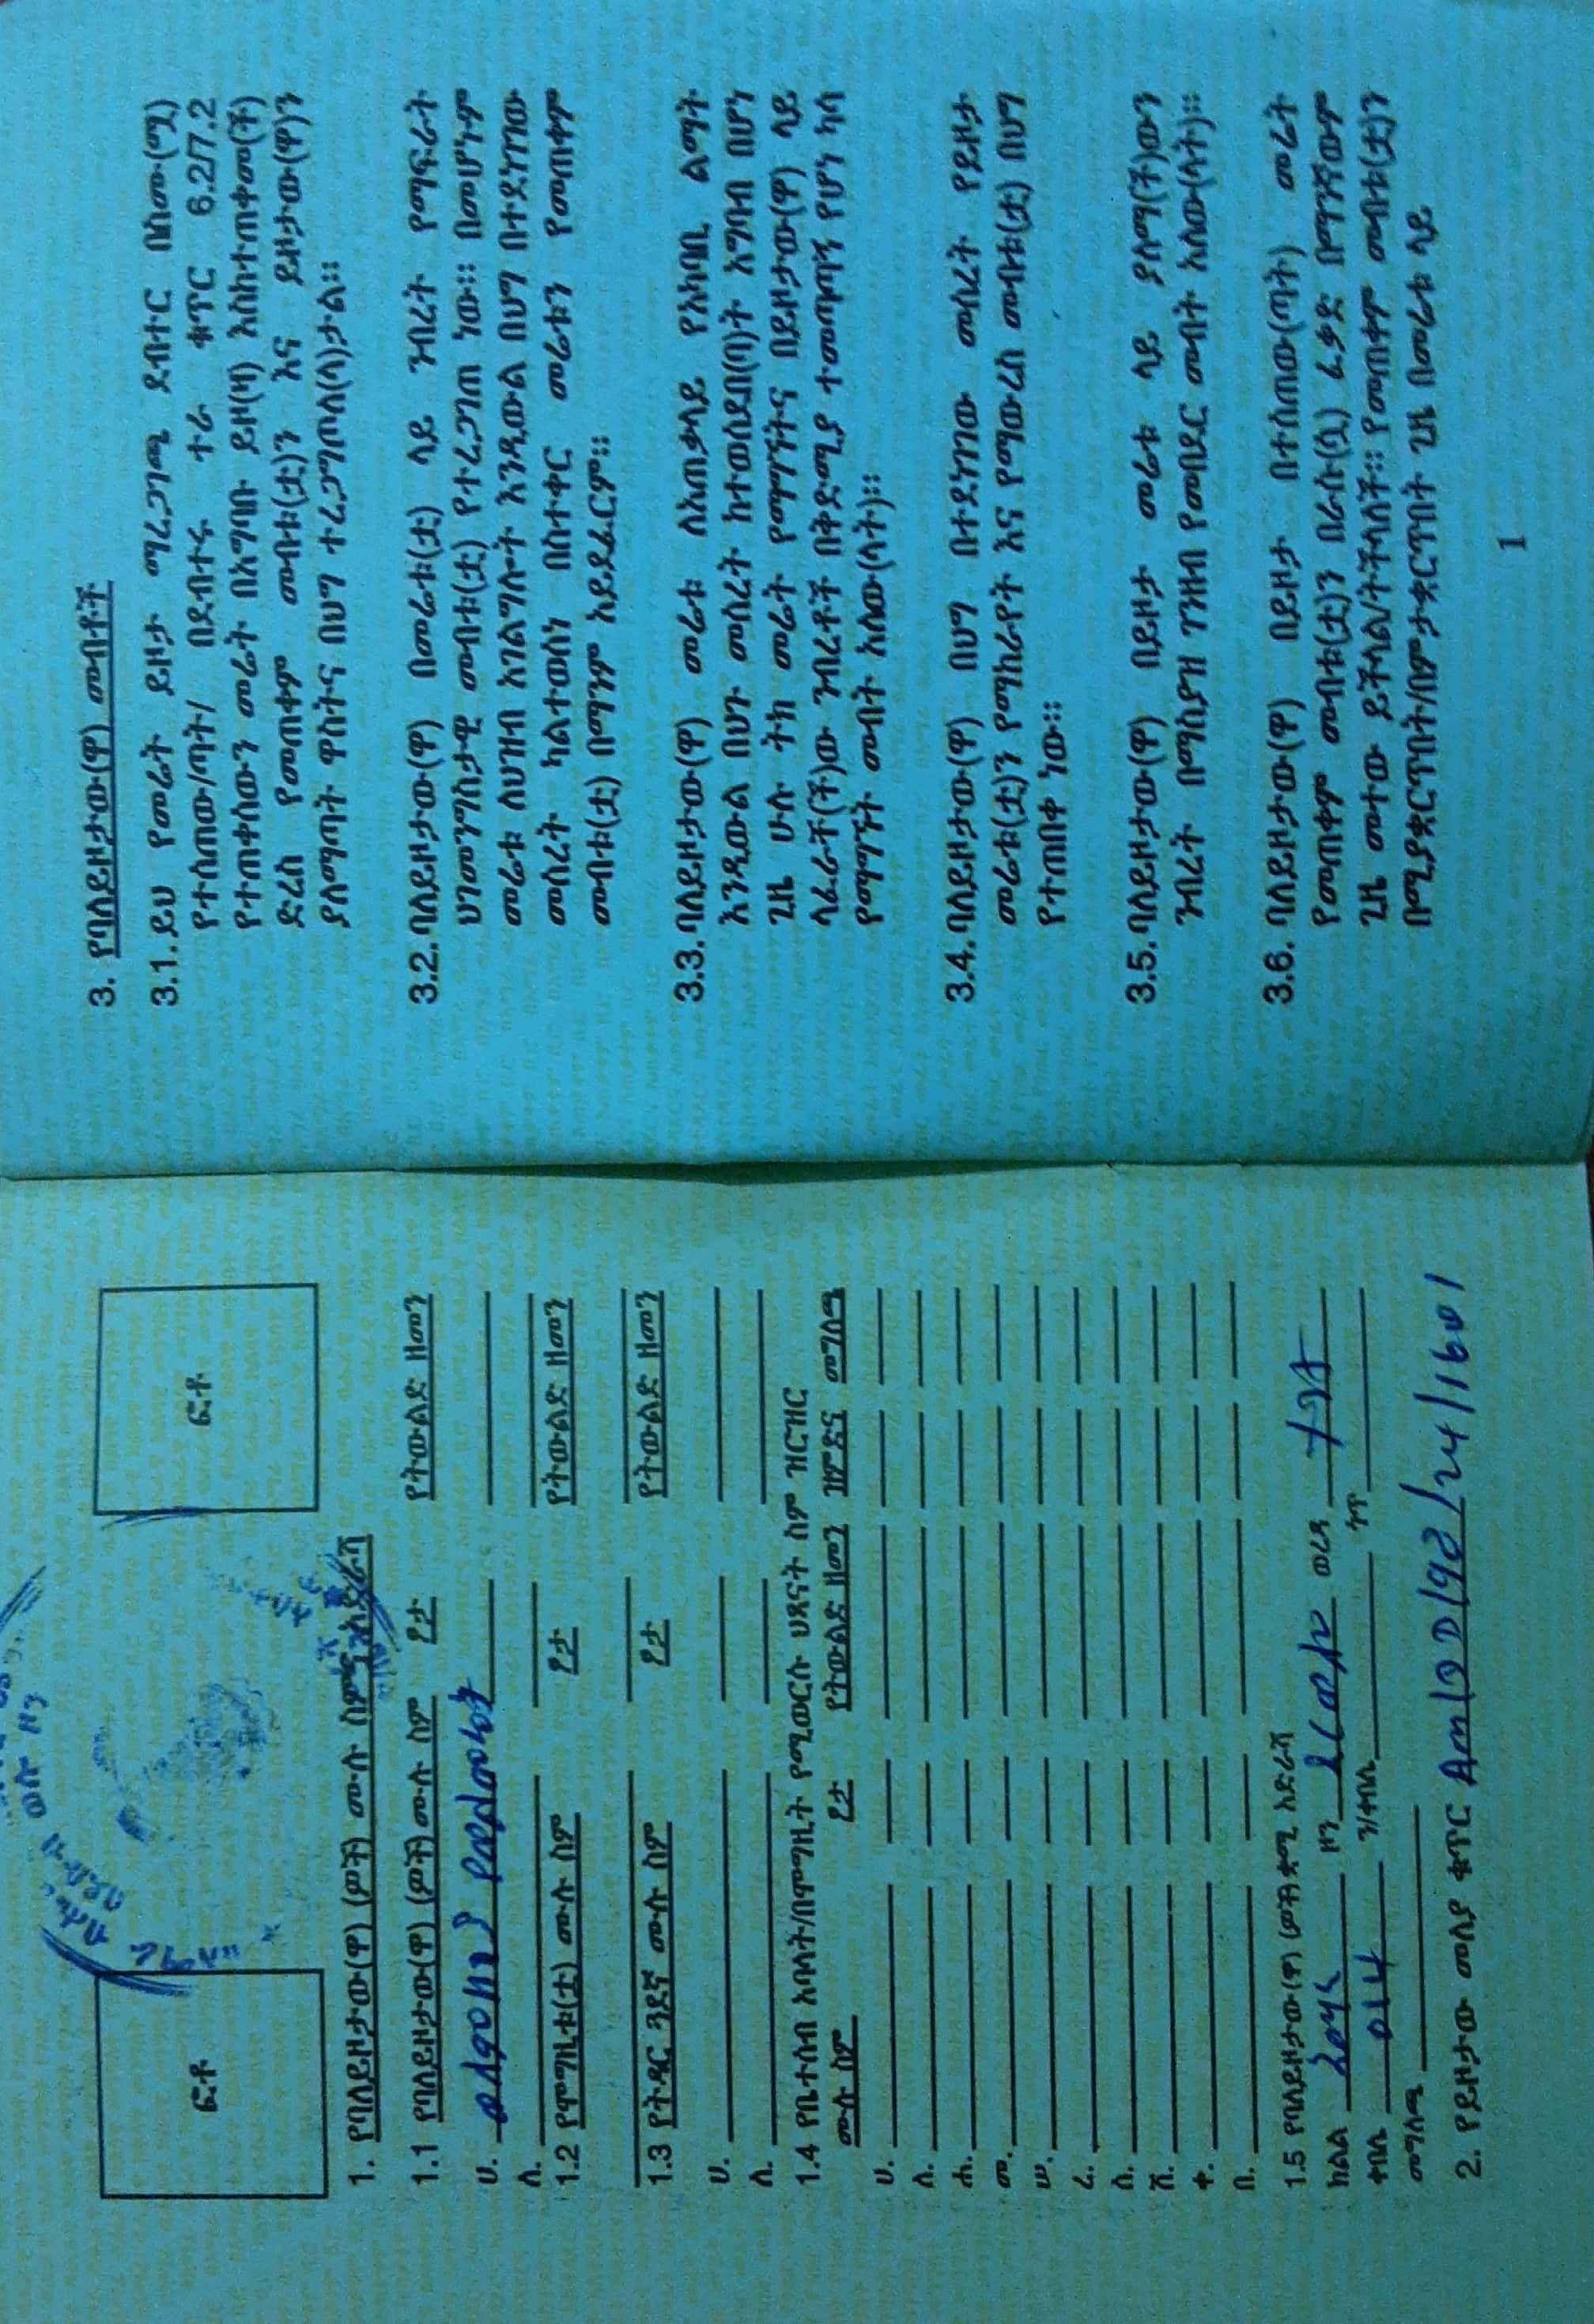 ፎቶ
ፎቶ
ወሎ ዞን
1. የባለይዞታው(ዋ) (ዎች) ሙሉ ስምና አድራሻ
1.1 የባለይዞታው(ዋ) (ዎች) ሙሉ ስም ፆታ የትውልድ ዘመን
ሀ.
ለ.
1.2 የሞግዚቱ(ቷ) ሙሉ ስም ፆታ የትውልድ ዘመን
1.3 የትዳር ጓደኛ ሙሉ ስም ፆታ የትውልድ ዘመን
ሀ.
ለ.
1.4 የቤተሰብ አባላት/በሞግዚት የሚወርሱ ህጻናት ስም ዝርዝር
ሙሉ ስም ፆታ የትውልድ ዘመን ዝምድና መግለጫ
ሀ.
ለ.
ሐ.
መ.
ሠ.
ረ.
ሰ.
ሸ.
ቀ.
በ.
1.5 የባለይዞታው(ዋ) (ዎች) ቋሚ አድራሻ
ክልል አማራ ዞን ደ/ወሎ ወረዳ
ቀበሌ 014 ን/ቀበሌ ጐጥ
መግለጫ
2. የይዞታው መለያ ቁጥር
3. የባለይዞታው(ዋ) መብቶች
3.1. ይህ የመሬት ይዞታ ማረጋገጫ ደብተር በስሙ(ሟ)
የተሰጠው/ጣት/ በደብተሩ ተራ ቁጥር 6.2/7.2
የተጠቀሰውን መሬት በአግባቡ ይዞ(ዛ) እስከተጠቀመ(ች)
ድረስ የመጠቀም መብቱ(ቷ)ን እና ይዞታው(ዋ)ን
ያለማጣት ዋስትና በህግ ተረጋግጦለ(ላ)ታል።
3.2. ባለይዞታው(ዋ) በመሬቱ(ቷ) ላይ ንብረት የማፍራት
ህገመንግስታዊ መብቱ(ቷ) የተረጋገጠ ነው። በመሆኑም
መሬቱ ለህዝብ አገልግሎት እንዲውል በህግ በተደነገገው
መሰረት ካልተወሰነ በስተቀር መሬቱን የመጠቀም
መብቱ(ቷ) በማንም አይደፈርም።
3.3. ባለይዞታው(ዋ) መሬቱ ለአጠቃላይ የአካባቢ ልማት
እንዲውል በህጉ መሰረት ከተወሰደበ(ባ)ት አግባብ በሆነ
ጊዜ ሁሉ ትክ መሬት የማግኘትና በይዞታው(ዋ) ላይ
ላፈራቸ(ች)ው ንብረቶች በቅድሚያ ተመጣጣኝ የሆነ ካሳ
የማግኘት መብት አለው(ላት)።
3.4. ባለይዞታው(ዋ) በህግ በተደነገገው መሰረት የይዞታ
መሬቱ(ቷ)ን የማከራየት እና የማውረስ መብቱ(ቷ) በህግ
የተጠበቀ ነው።
3.5. ባለይዞታው(ዋ) በይዞታ መሬቱ ላይ ያለማ(ች)ውን
ንብረት በማስያዝ ገንዘብ የመበደር መብት አለው(ላት)።
3.6. ባለይዞታው(ዋ) በይዞታ በተሰጠው(ጣት) መሬት
የመጠቀም መብቱ(ቷ)ን በራሱ(ሷ) ፈቃድ በማኛውም
ጊዜ መተው ይችላል/ትችላለች። የመጠቀም መብቱ(ቷ)ን
በሚያቋርጥበት/በምታቋርጥበት ጊዜ በመሬቱ ላይ
1